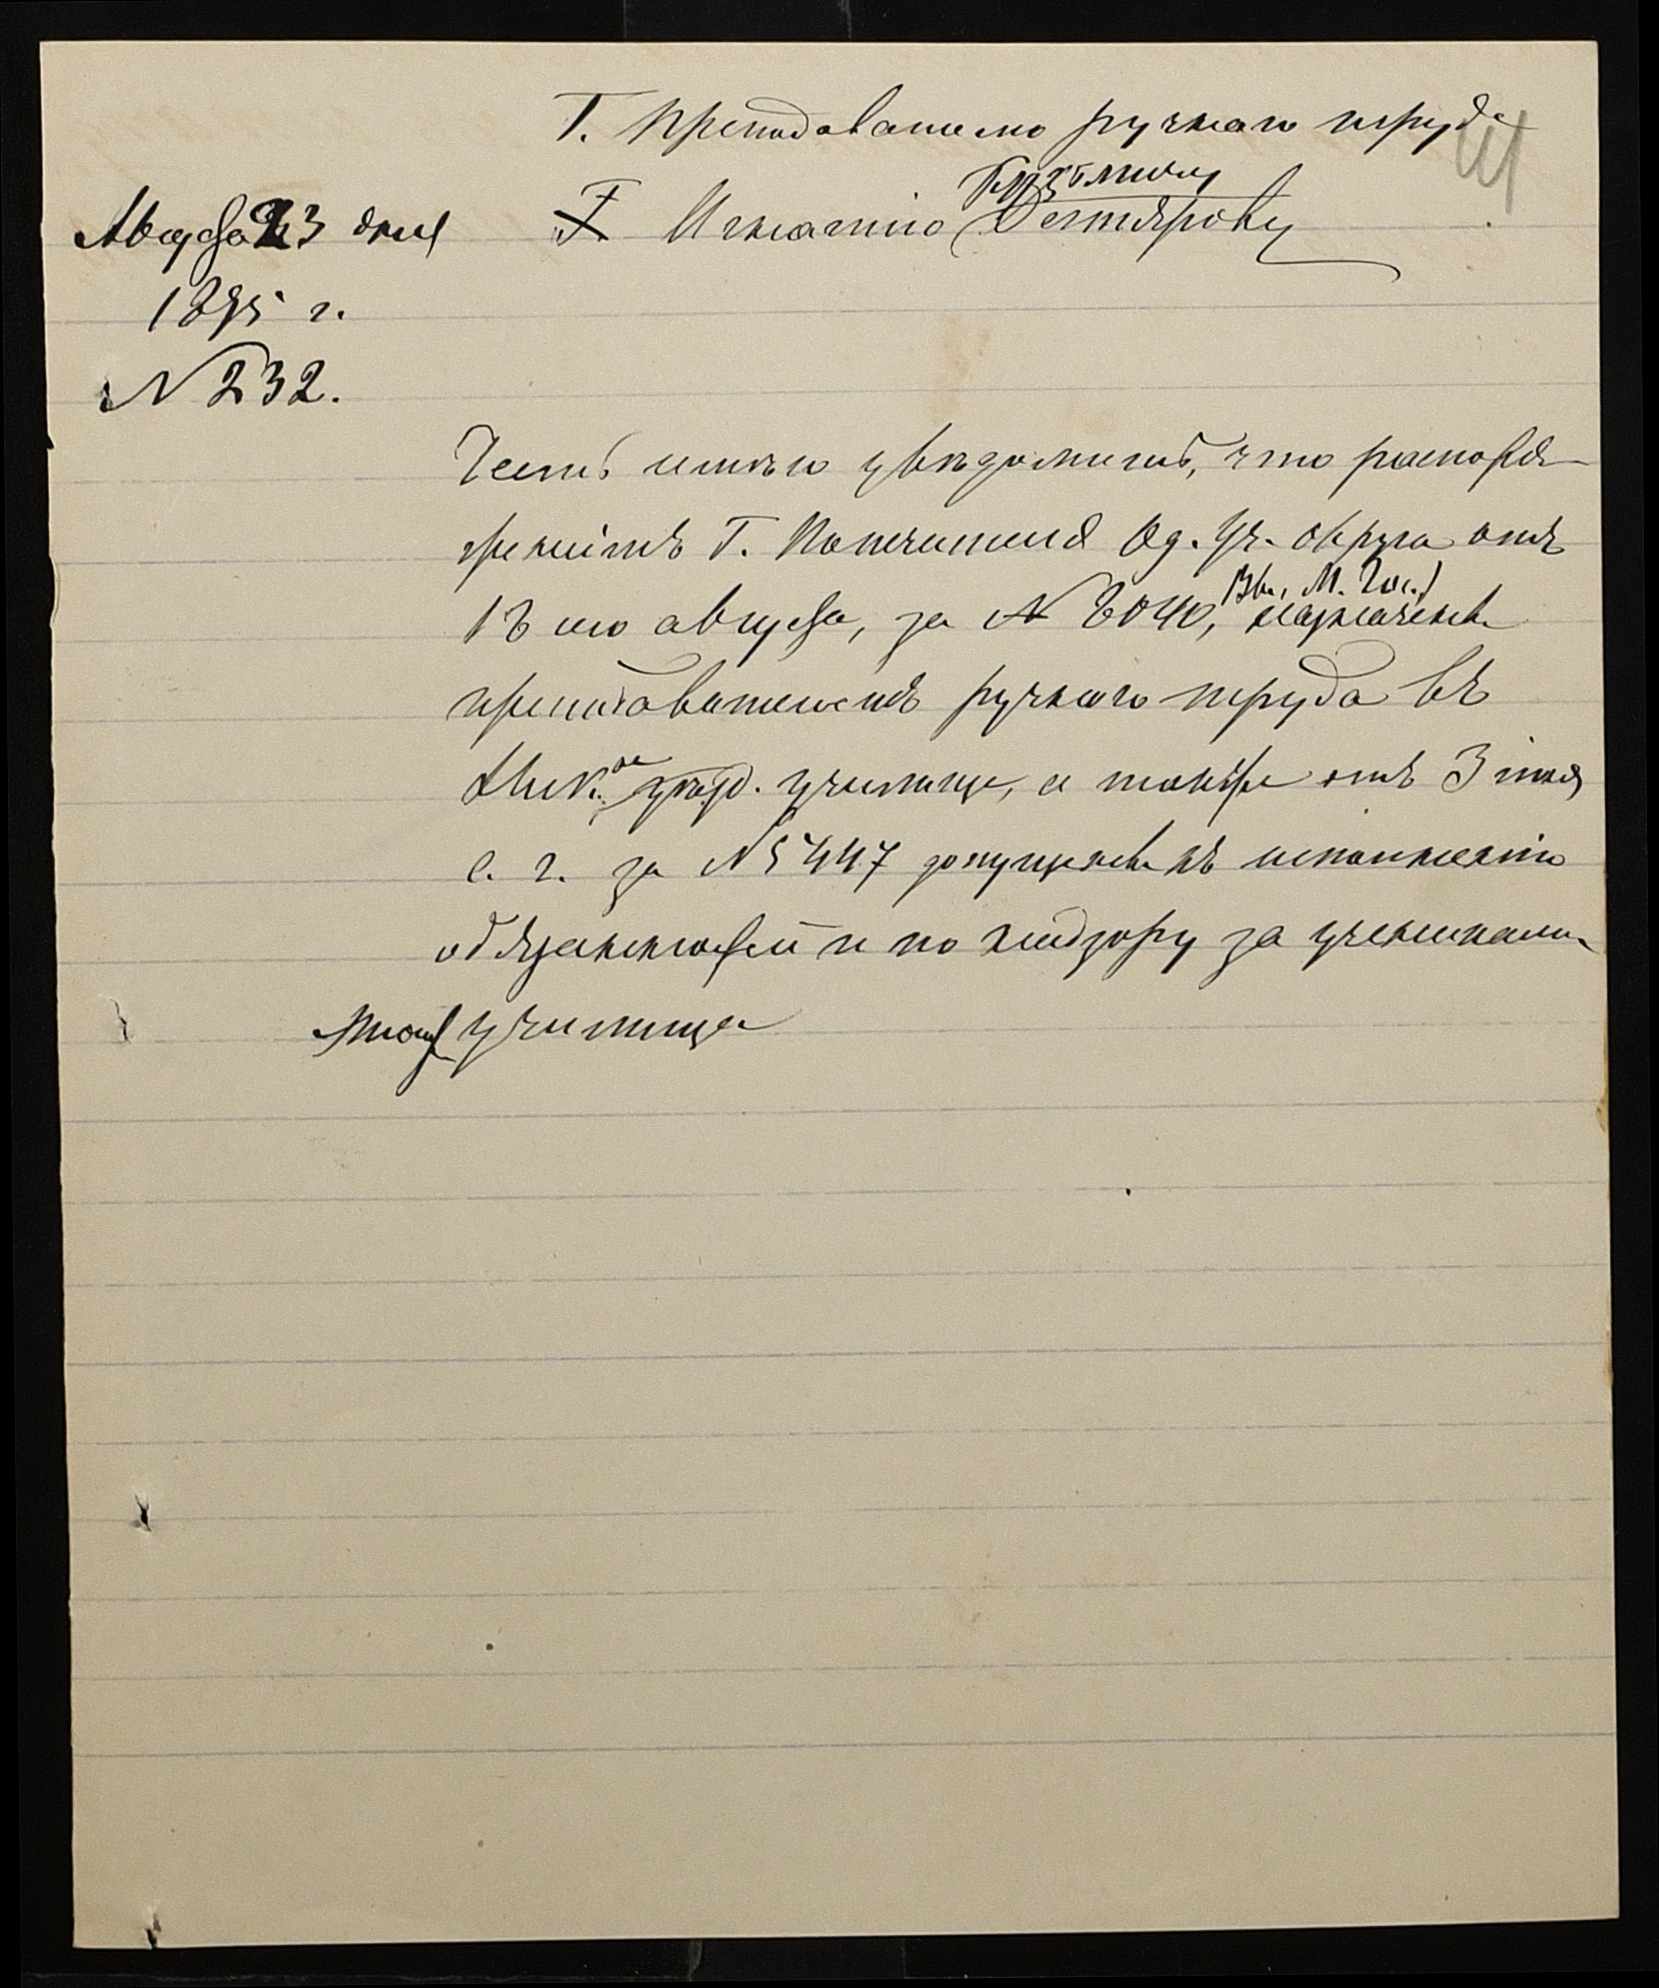 Г. Преподавателю ручнаго труда
Кузьмичу
Г. Игнатію Дегтярову
Августа 23 дня
1895 г.
№ 232.
Честь имѣю увѣдомить, что распоря-
женіемъ Г. Попечителя Од. Уч. округа отъ
18 его августа, за № 8040, Вы, М. Гос.,
назначены
преподавателемъ ручнаго труда въ
Ник. училище, а также отъ 3 іюля
с. г. за № 5447 допущены къ исполненію
обязанностей и по надзору за учениками
училища